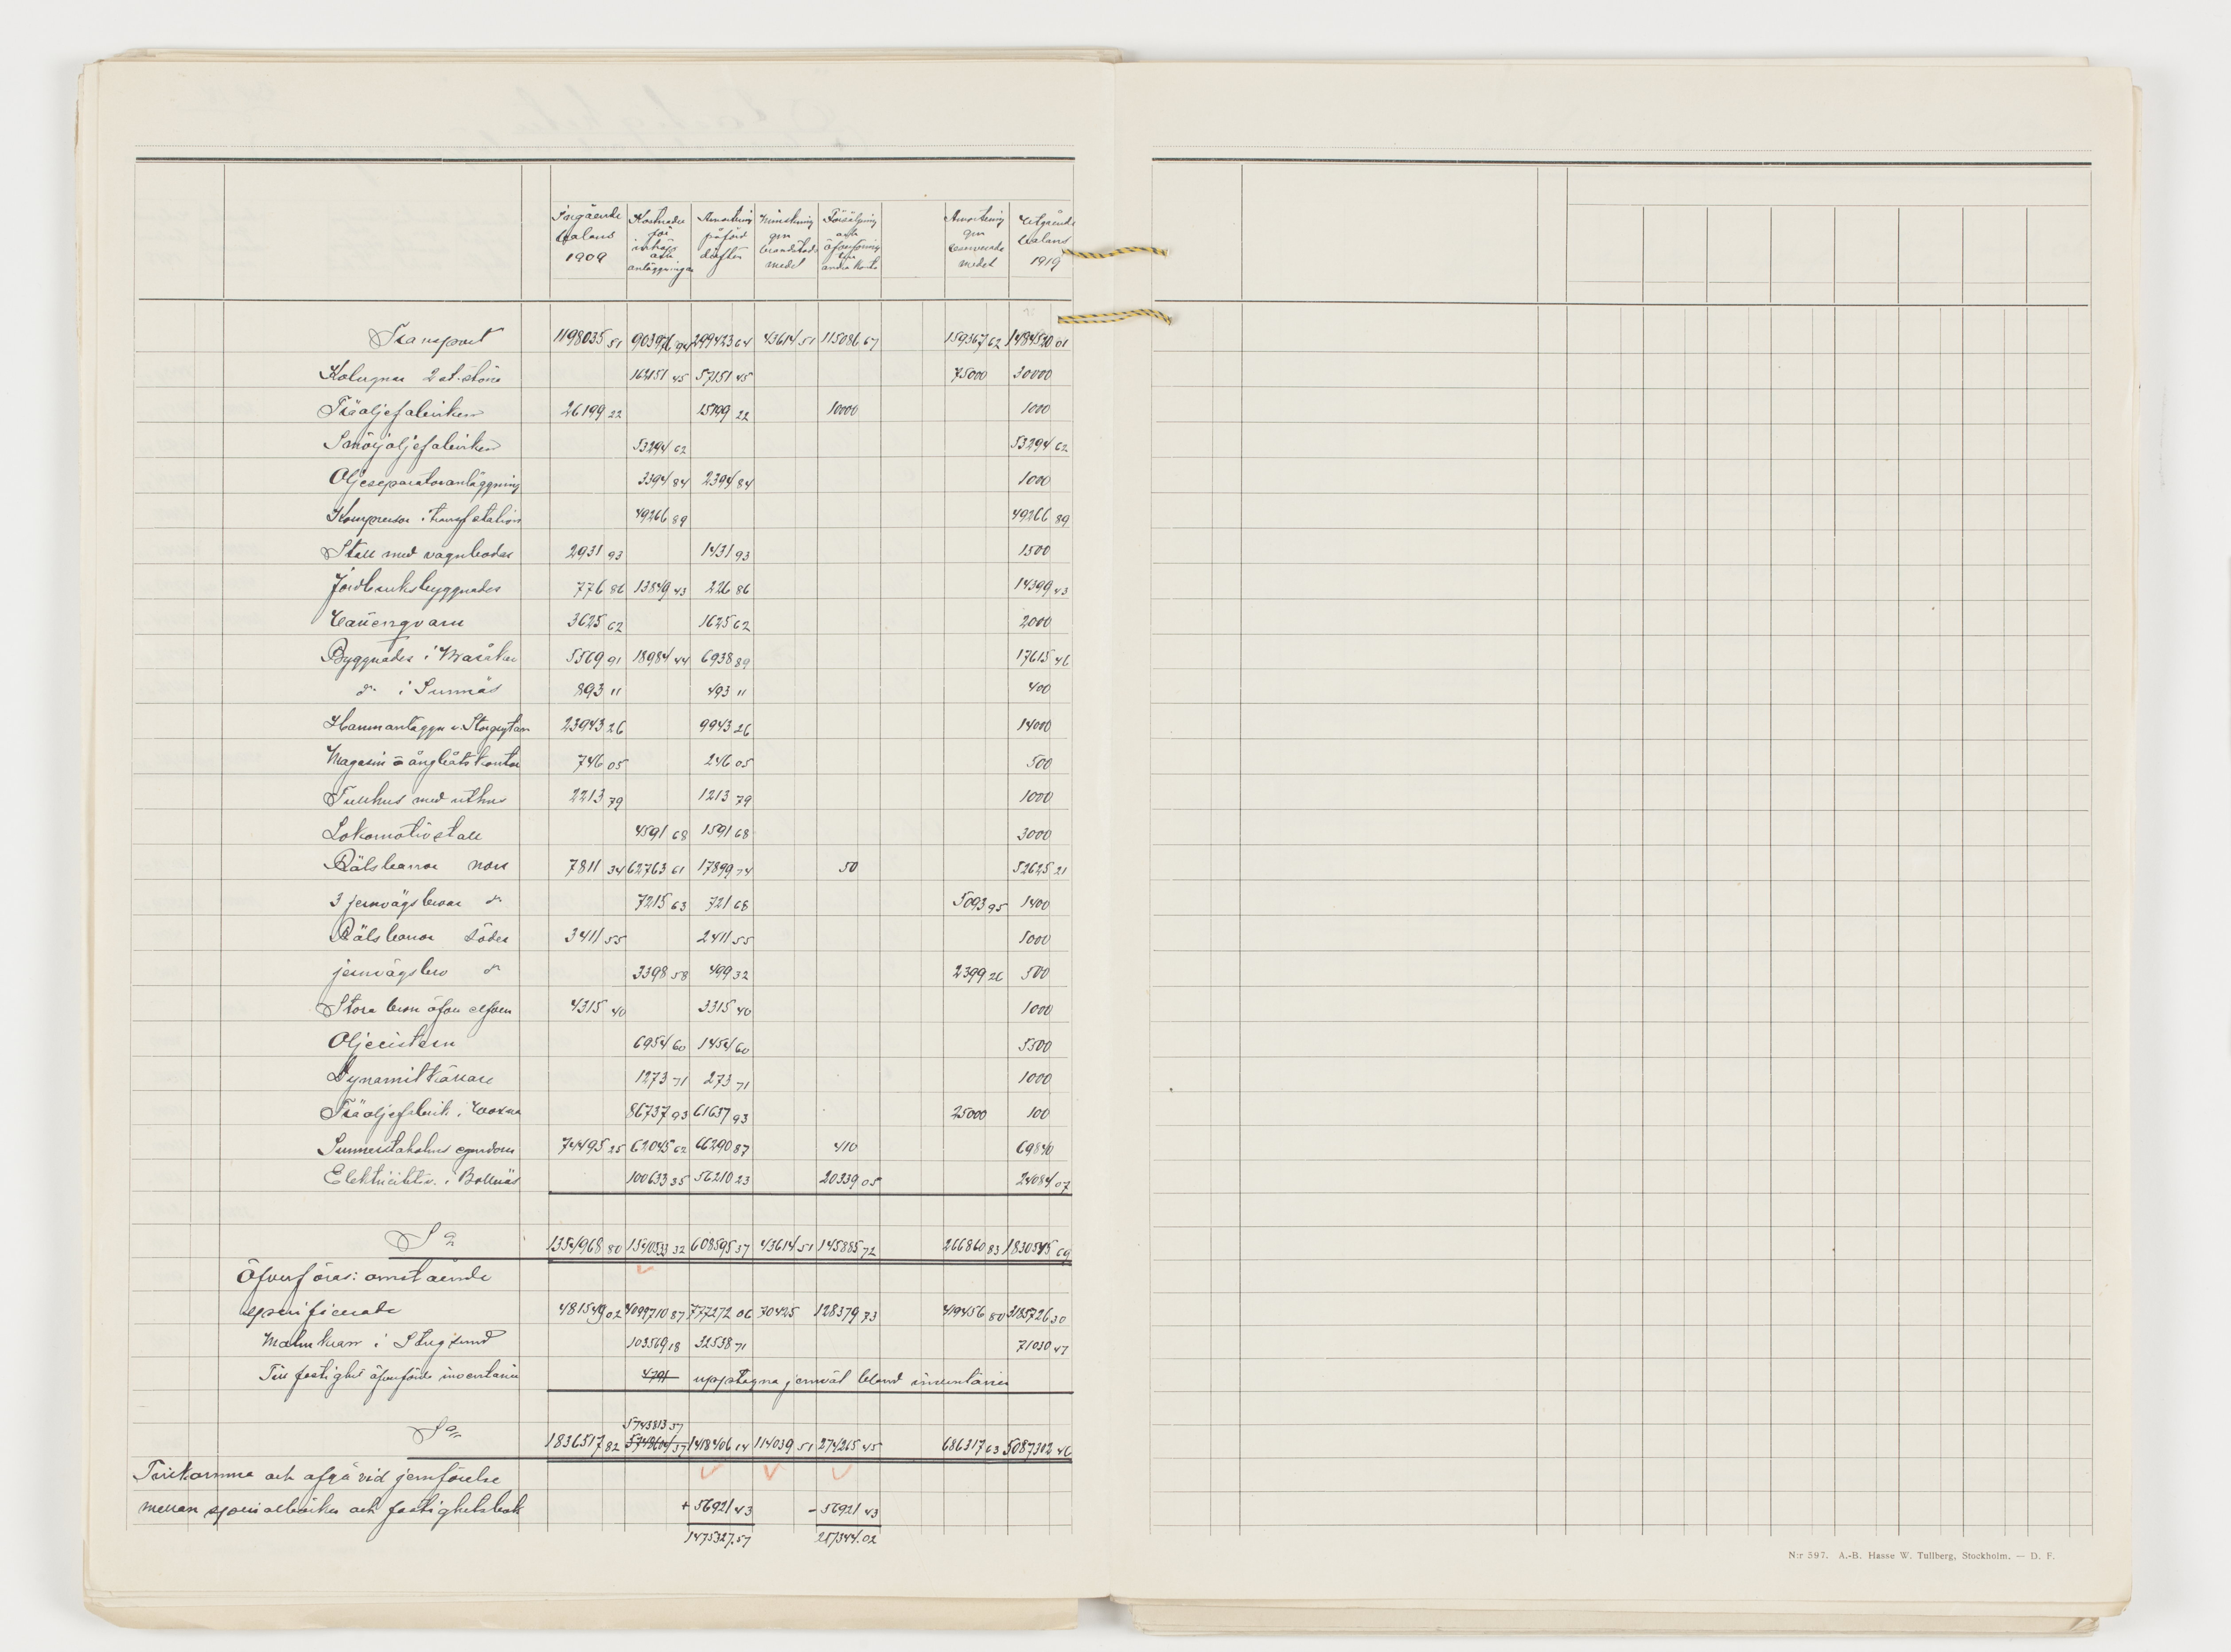 Ingående balans 1909
Kostnader för inköp och anläggningar
Amortering påförd driften
Minskning gm brandskade medel
Försäljning och öfverföring till andra konto
Amortering gm reserverade medel
Utgående balans 1919
Transport 1198035 51 903976 94 299423 64 43614 51 115086 67 159367 62 1484520 01
Kolugnar 2 st. större 162151 45 57151 45 75000 30000
Träoljefabriken 26199 22 15199 22 10000 1000
Smörjoljefabriken 53294 62 53294 62
Oljeseparatoranläggning 3394 84 2394 84 1000
Kompressor i transf station 49266 89 49266 89
Stall med vagnbodar 2931 93 1431 93 1500
Jordbruksbyggnader 776 86 13849 43 226 86 14399 43
Qvarn 3625 62 1625 62 2000
Byggnader i Maråker 5569 91 18984 44 6938 89 17615 46
do i Sunnäs 893 11 493 11 400
Hamnanläggn v. Storgrytan 23943 26 9943 26 14000
Magasin o ångbåtskontor 746 05 246 05 500
Tullhus med uthus 2213 79 1213 79 1000
Lokomotivstall 4591 68 1591 68 3000
Rälsbanor norr 7811 34 62763 61 17899 74 50 52625 21
3 jernvägsbroar do 7215 63 721 68 5093 95 1400
Rälsbanor söder 3411 55 2411 55 1000
jernvägsbro do 3398 58 499 32 2399 26 500
Stora bron öfver elfven 4315 40 3315 40 1000
Oljecistern 6954 60 1454 60 5500
Dynamitkällare 1273 71 273 71 1000
Träoljefabrik i Voxna 86737 93 61637 93 25000 100
Sunnerstaholms egendom 74495 25 62045 62 66290 87 410 69840
Elektricitetsv. i Bollnäs 100633 35 56210 23 20339 05 24084 07
Sa 1354968 80 1540533 32 608595 37 43614 51 145885 72 266860 83 1830545 69
Öfverföras: omstående
specificerade 481549 02 4099710 87 777272 06 70425 128379 73 419456 80 3185726 30
Malmkran i Stugsund 103569 18 32538 71 71030 47
Till fastighet öfverförde inventarier 4791 upptagna jemväl bland inventarier
5743813 37
Sa 1836517 82 5748604 37 1418406 14 114039 51 274265 45 686317 63 5087302 46
Tillkomma och afgå vid jemförelse
mellan specialböcker och fastighetsbok + 56921 43 - 56921 43
1475327.57 217344.02
N:r 597. A.-B. Hasse W. Tullberg, Stockholm. — D. F.